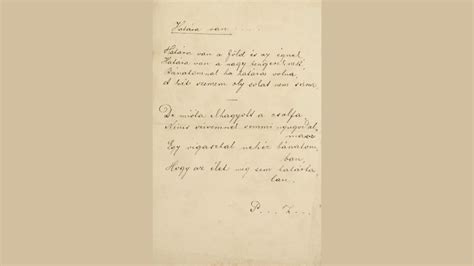 Határa van . . . .
Határa van a föld és az égnek
Határa van a nagy tengerek
Bánatomnak ha határa volna,
A két szemem oly sokat nem sírna
De mióta elhagyott a csalfa
Nincs szivemnek semmi nyugodal
masa
Egy vigasztal nehéz bánatom
ban,
Hogy az élet még sem határta
lan.
P. . . . Z. . . .